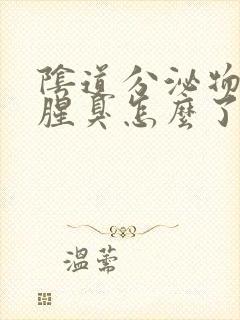 陰道分泌物
腥臭怎麼了
溫蕾